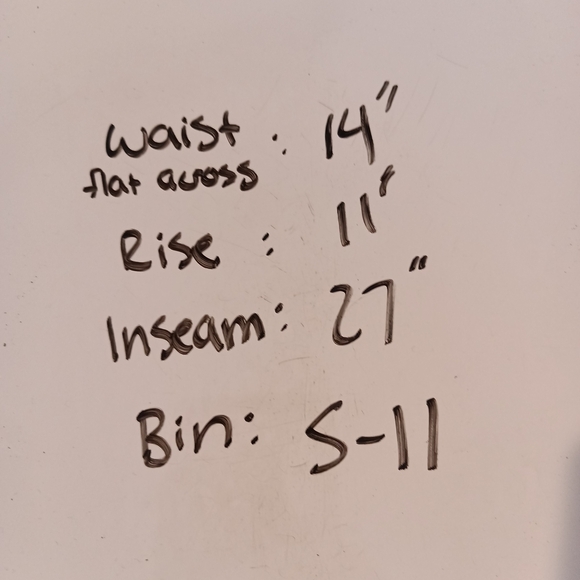 Waist : 14"
flat across
Rise : 11"
Inseam: 27"
Bin: S-11